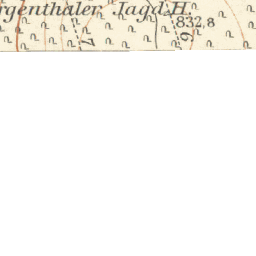 rgenthaler Jagd H.
832,8
7
6